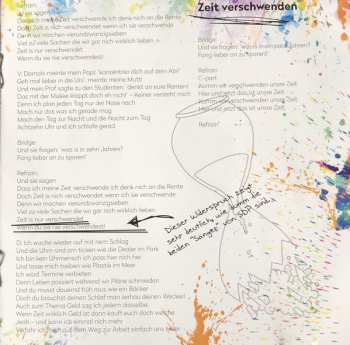 Refrain:
Und sie sagen:
Dass ich meine Zeit verschwende ich denk nich an die Rente
Doch Zeit is nich verschwendet wenn ich sie verschwende
Denn wir machen verrundsiwanzigsieben
Viel zu viele Sachen die wir gar nich wirklich lieben
Zeit is nur verschwendet
Wenn du sie nie verschwendest!
Geh mal lieber in die Uni, meinte meine Mutti
Und mein Prof sagte zu den Studenten, denkt an eure Renten!
Das mit der Mukke klappt doch eh nich! - Keiner versteht mich!
Denn ich plan jeden Tag nur der Nase nach
Mach nur das was ich gerade mag
Mach den Tag zur Nacht und die Nacht zum Tag
Achtzehn Uhr und ich schlafe grad
Bridge:
Und sie fragen: was is in zehn Jahren?
Fang lieber an zu sparen!
Refrain:
Und sie sagen:
Dass ich meine Zeit verschwende ich denk nich an die Rente
Doch Zeit is nich verschwendet wenn ich sie verschwende
Denn wir machen
Viel zu viele Sachen die wir gar nich wirklich lieben
Zeit is nur verschwendet
Wenn du sie nie verschwendest!
Ich wache wieder auf mit nem Schlag
Und die Uhrn sind am ticken wie die Dealer im Park
Ich bin kein Uhrmensch ich pass hier nich her
Und lasse mich treiben wie Plastik im Meer
Ich würd Termine verbieten
Denn Leben passiert während wir Pläne schmieden
Und du musst dauernd früh raus wie ein Bäcker
Doch du brauchst deinen Schlaf man sonst
Auch zum Thema Geld sag ich jedem dasselbe
Denn Zeit wirklich Geld is dann kauft euch doch welche
Yeah - und kann ich einmal nich mehr
Zeit verschwenden
Bridge:
Und sie fragen: was is in zehn Jahren?
Fang lieber an zu sparen!
Refrain
C-part:
Komm wir verschwenden unsre Zeit
Hier und jetzt das ist unsre Zeit
Komm wir verschwenden unsre Zeit
Hier und jetzt das ist unsre Zeit
Refrain
Dieser Widerspruch zeigt
sehr deutlich, wie dumm die
beiden "Sänger" von SDP sind.